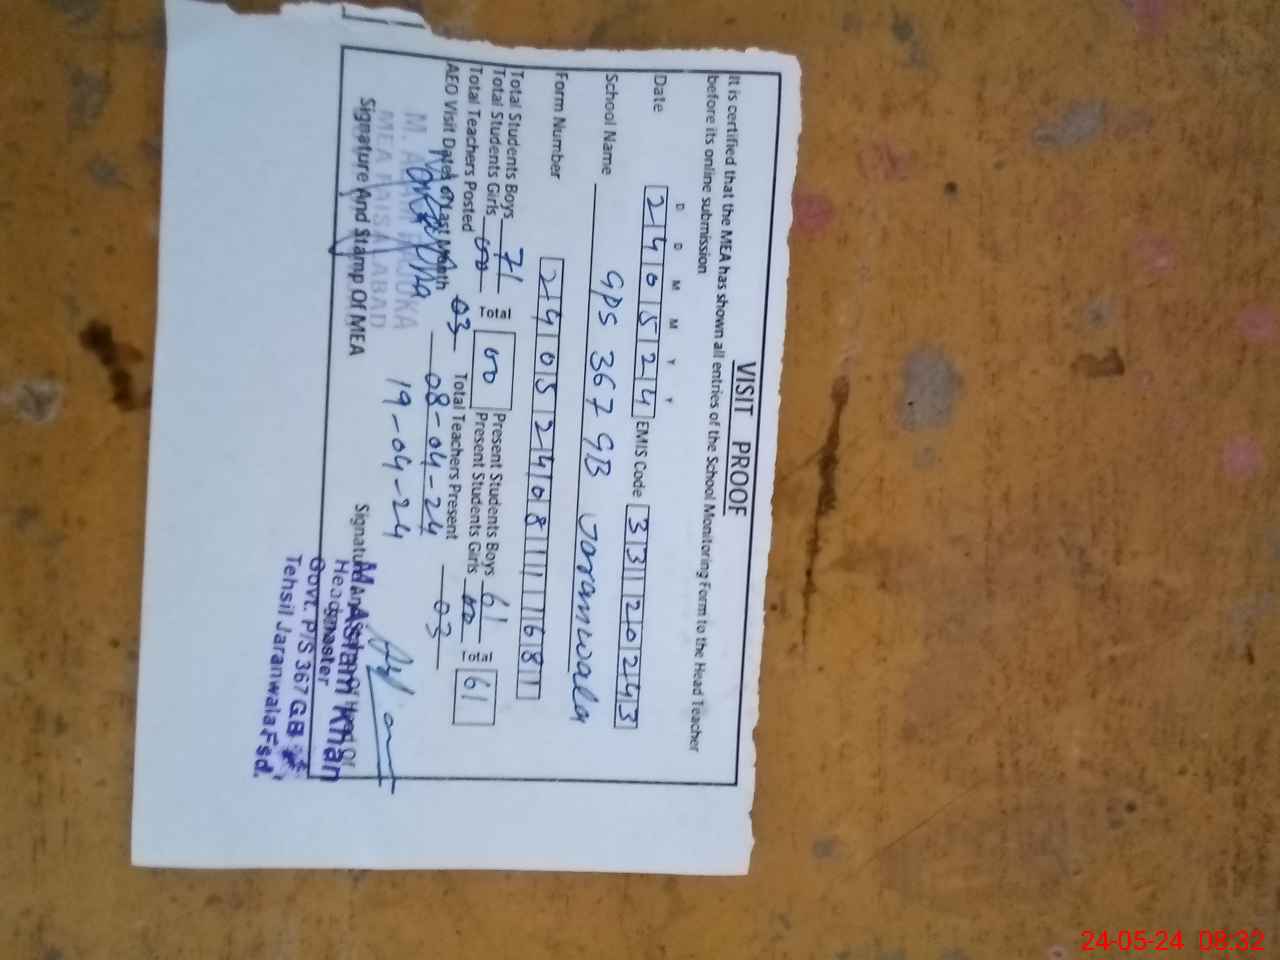 VISIT PROOF
It is certified that the MEA has shown all entries of the School Monitoring Form to the Head Teacher
before its online submission
D D M M Y Y
Date 240524 EMIS Code 33120243
School Name GPS 367 GB Jaranwala
Form Number 24052408111681
Total Students Boys 71 Total 00 Present Students Boys 61 Total 61
Total Students Girls 00 Present Students Girls 00
Total Teachers Posted 03 Total Teachers Present 03
AEO Visit Dates of Last Month 08-04-24
19-04-24
MEA FAISALABAD
Signature And Stamp Of MEA
Aslam Khan
Headmaster
Govt. P/S 367 GB
Tehsil Jaranwala Fsd.
24-05-24 08:32